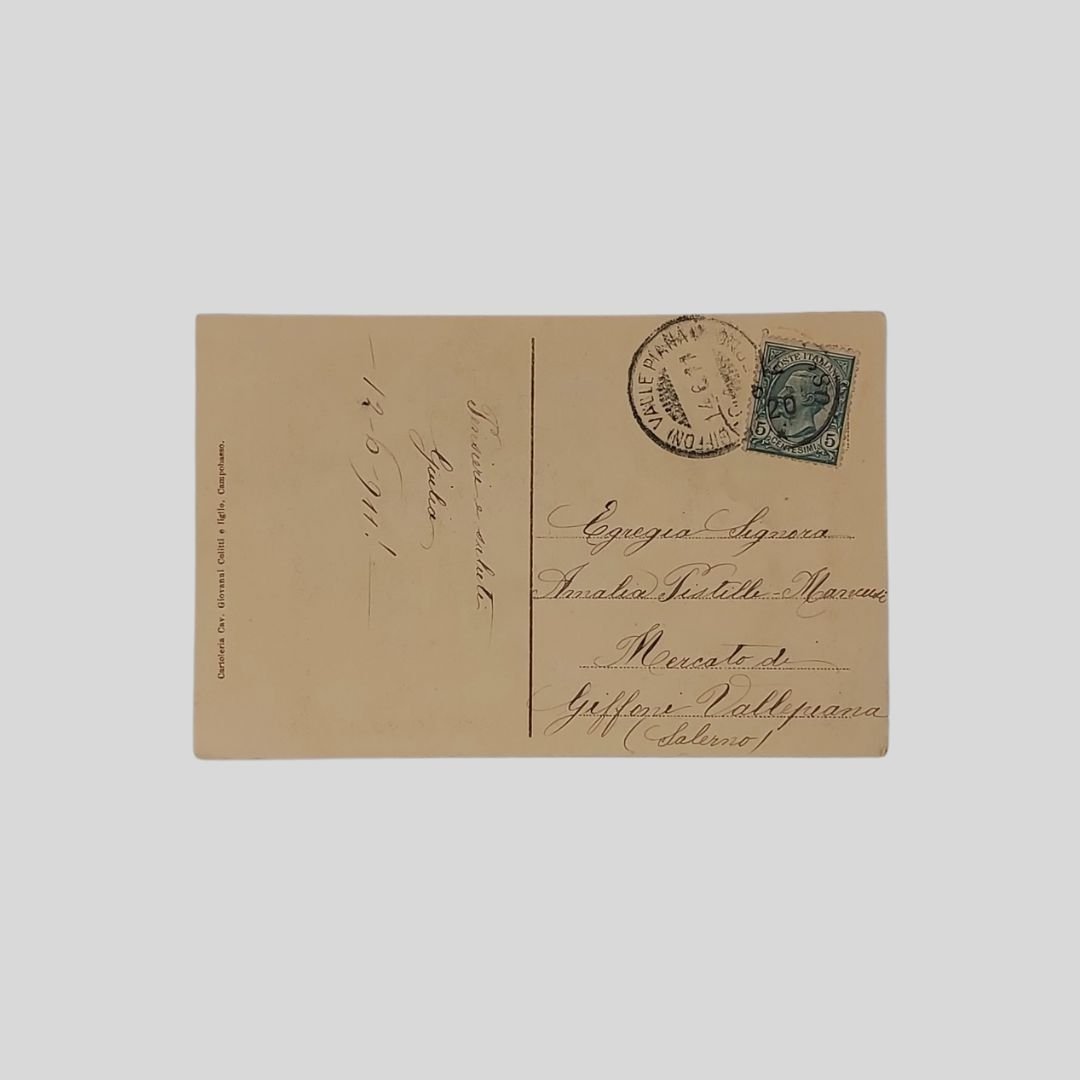 Cartoleria Cav. Giovanni Colitti e figlio, Campobasso.
Pensieri e saluti
Giulia
GIFFONI VALLE PIANA
POSTE ITALIANE
5 CENTESIMI 5
20
Egregia Signora
Amalia Pistilli-
Mercato di
Giffoni Vallepiana
(Salerno)